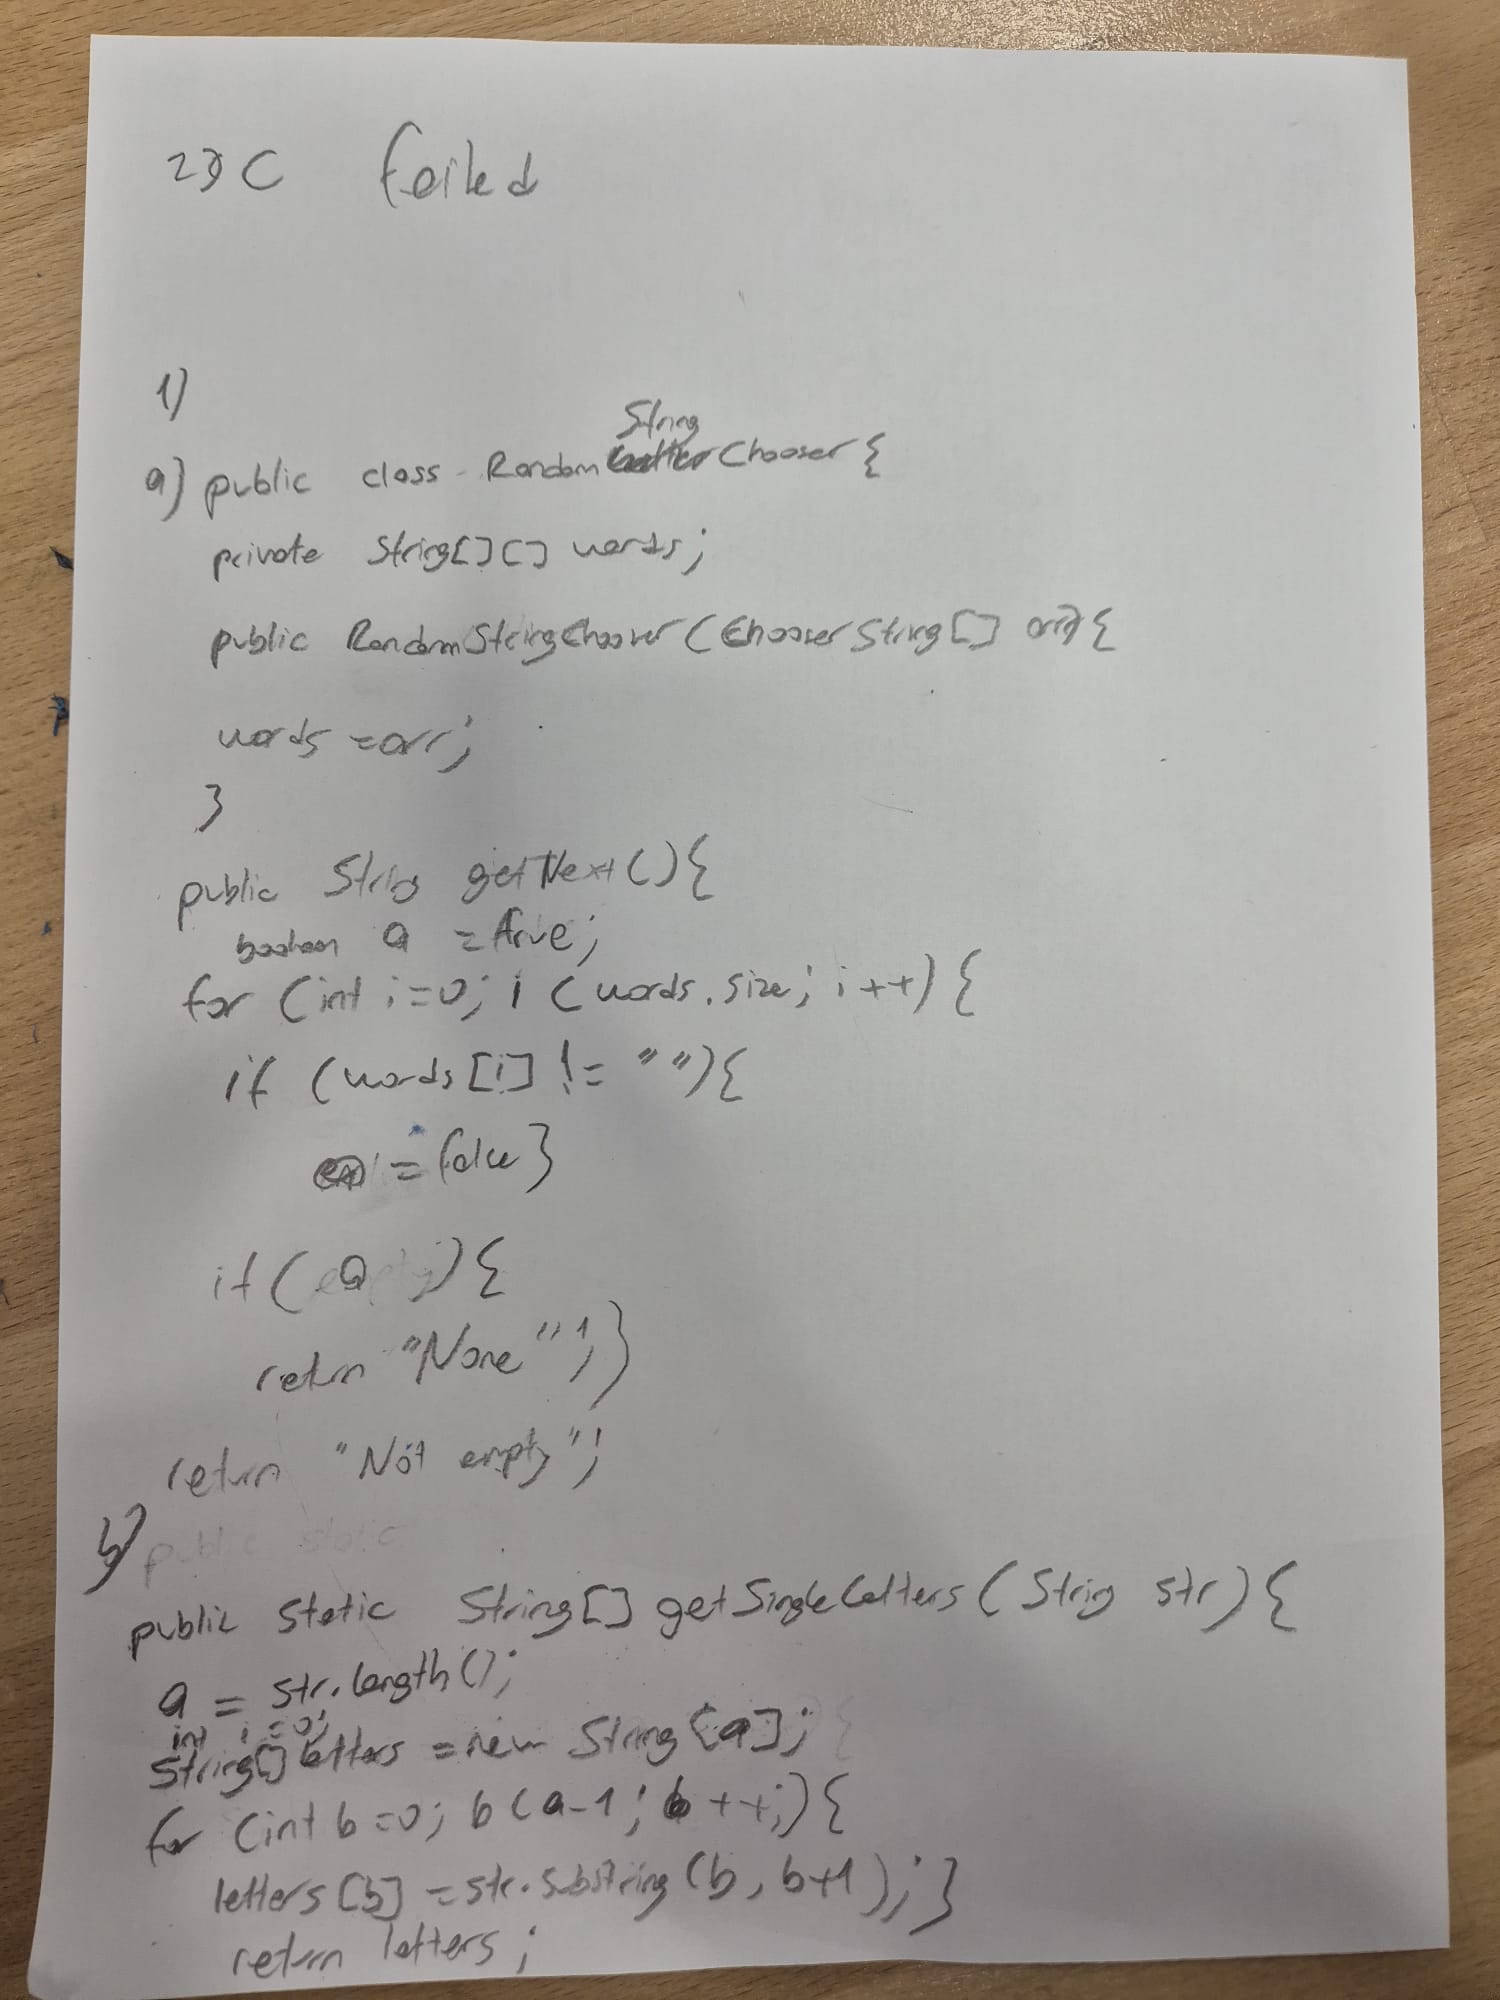 23C failed
1)
String
a) public class Random Chooser {
private String[][] words;
public RandomStringChooser (Chooser String[] arr) {
words = arr;
}
public String getNext() {
boolean a = true;
for (int i=0; i < words.size; i++) {
if (words[i] != "") {
= false }
if ( a ) {
return "None"; }
return "Not empty";
b)
public static
public static String[] getSingleLetters (String str) {
a = str.length();
int i = 0;
String[] letters = new String [a];
for (int b=0; b < a-1; b++;) {
letters [b] = str.substring (b, b+1); }
return letters;